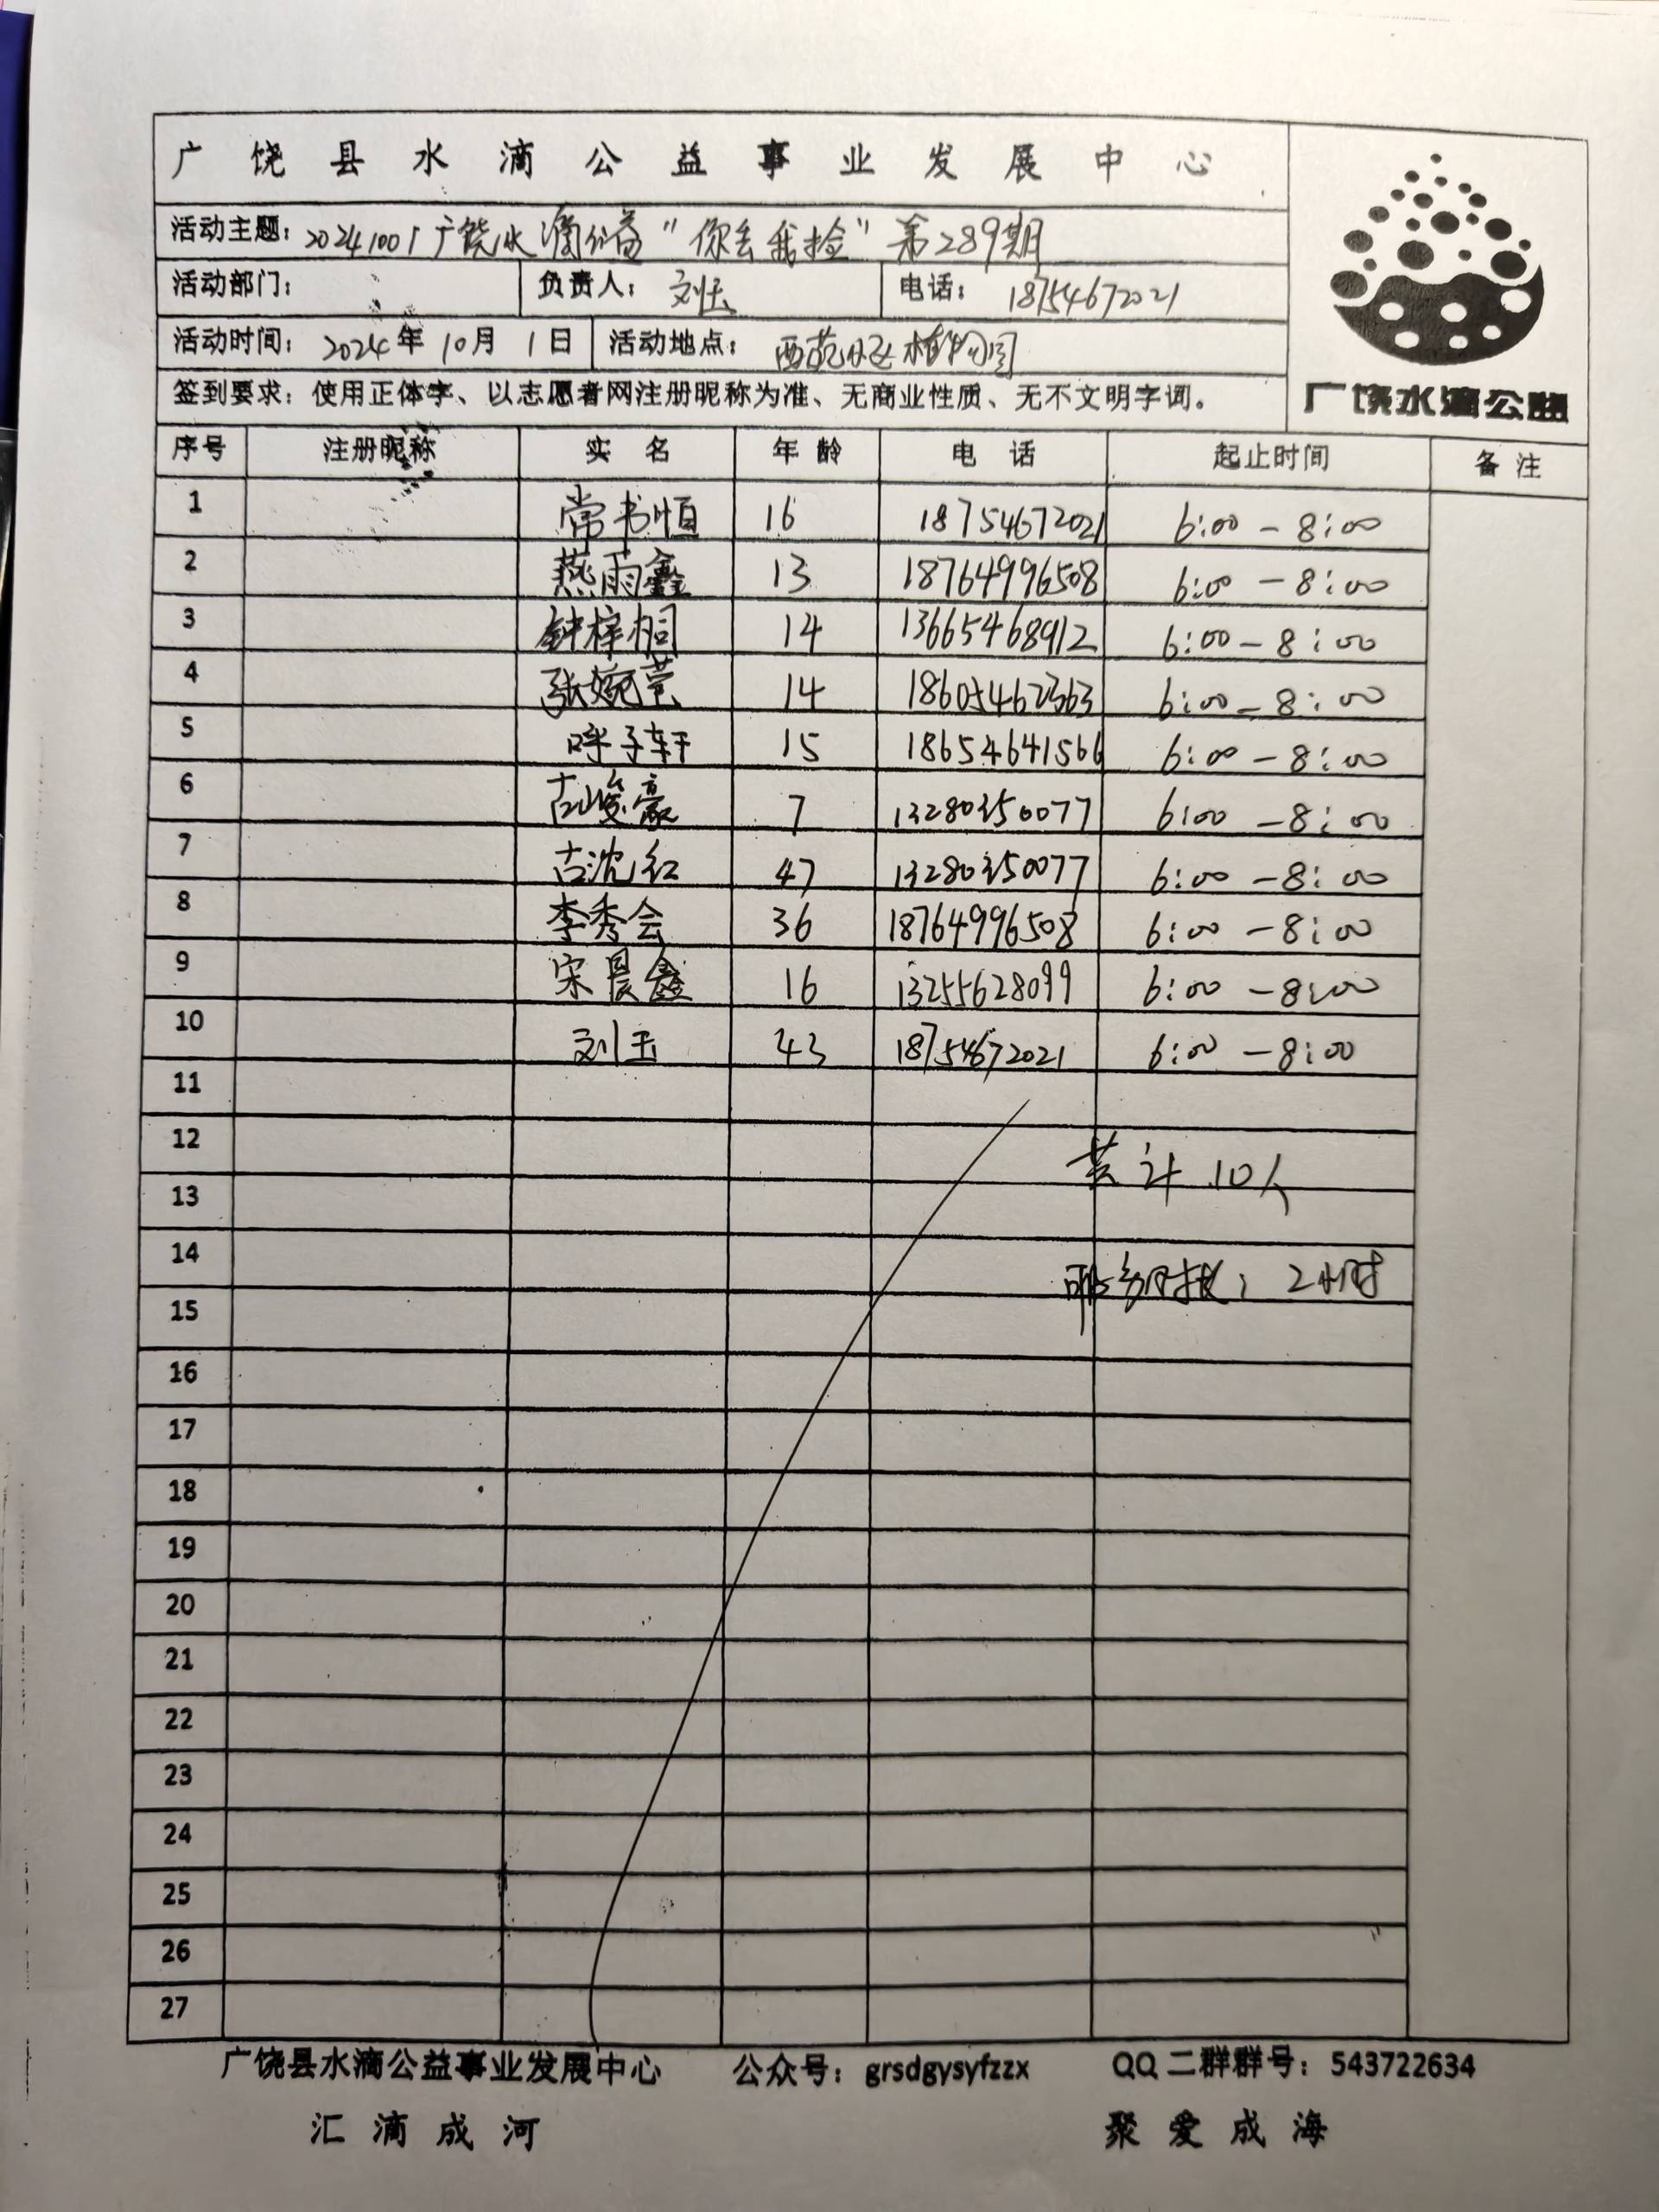 广饶县水滴公益事业发展中心
活动主题：20241001广饶水滴公益“你丢我捡”第289期
活动部门： 负责人：刘玉 电话：18754672021
活动时间：2024年10月1日 活动地点：西苑小区植物园
签到要求：使用正体字、以志愿者网注册昵称为准、无商业性质、无不文明字词。
广饶水滴公益
序号 注册昵称 实名 年龄 电话 起止时间 备注
1 常书恒 16 18754672021 6:00-8:00
2 燕雨鑫 13 18764996508 6:00-8:00
3 钟梓桐 14 13665468912 6:00-8:00
4 张婉莹 14 6:00-8:00
5 呼子轩 15 18654641566 6:00-8:00
6 古峻豪 7 13280350077 6:00-8:00
7 古沈红 47 13280350077 6:00-8:00
8 李秀会 36 18764996508 6:00-8:00
9 宋晨鑫 16 13255628099 6:00-8:00
10 刘玉 43 18754672021 6:00-8:00
11
12 共计10人
13
14 2小时
15
16
17
18
19
20
21
22
23
24
25
26
27
广饶县水滴公益事业发展中心 公众号：grsdgysyfzzx QQ二群群号：543722634
汇滴成河 聚爱成海